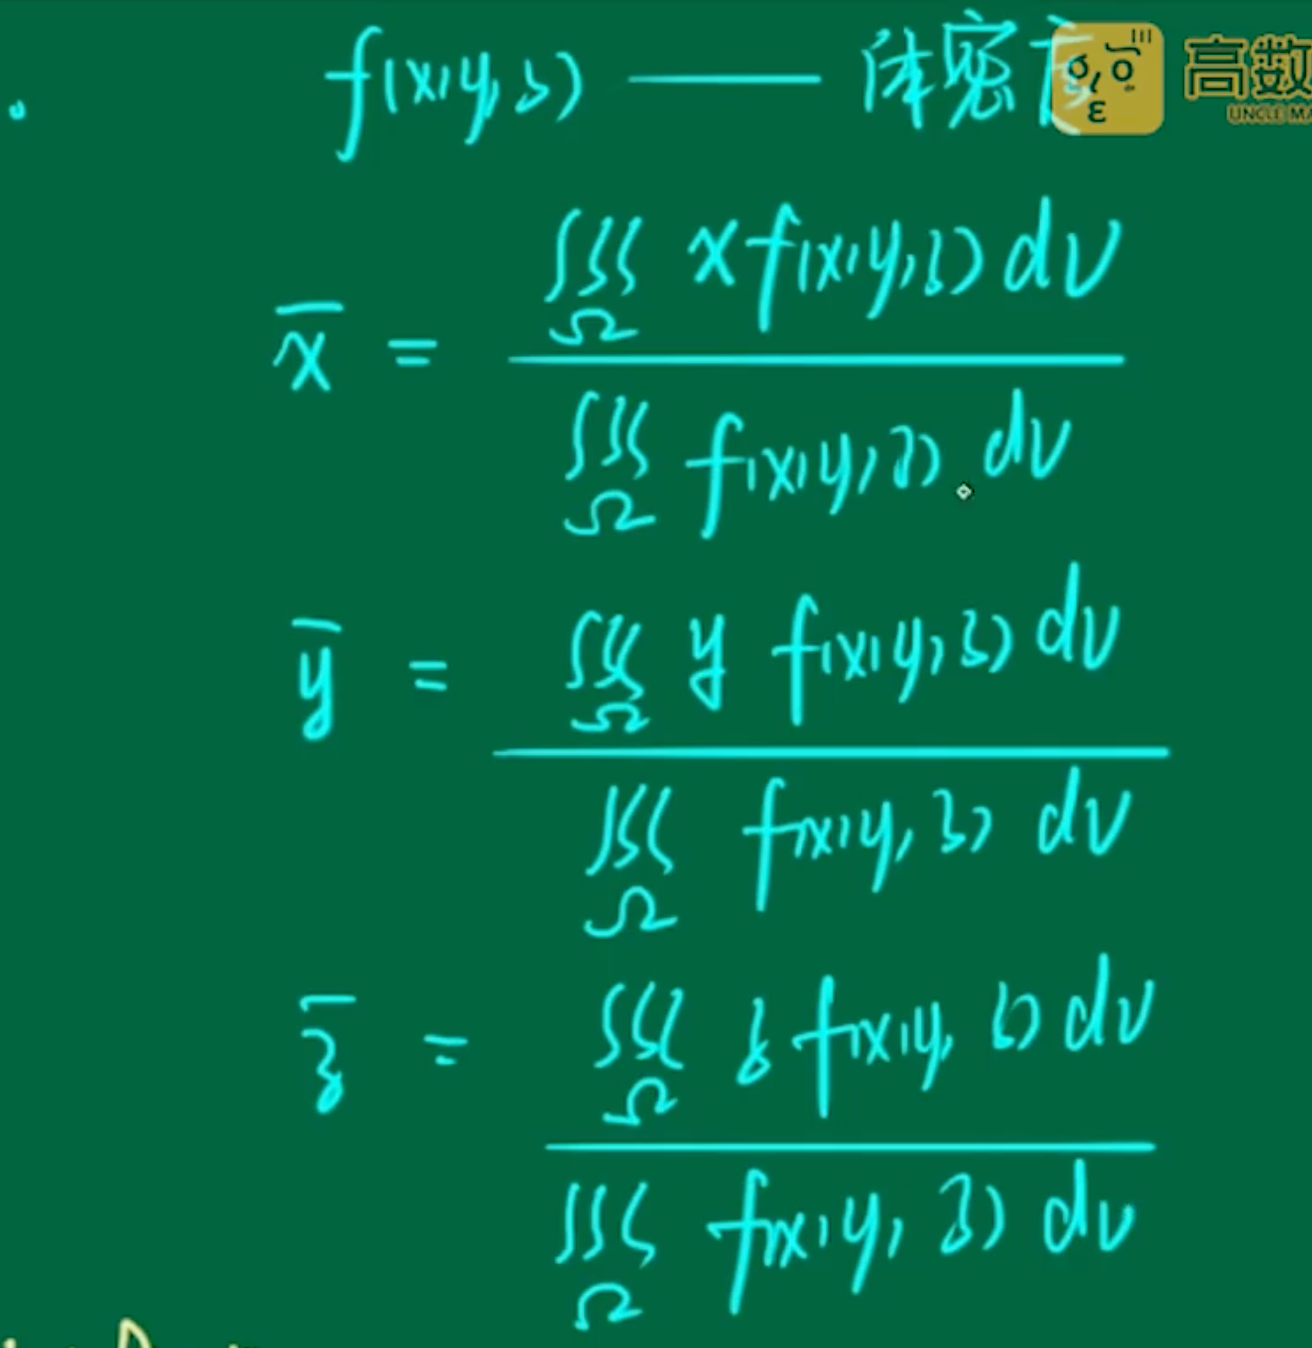 f(x,y,z) —— 体密度
高数
UNCLE MA
x̄ = ∭_Ω x f(x,y,z) dv / ∭_Ω f(x,y,z) dv
ȳ = ∭_Ω y f(x,y,z) dv / ∭_Ω f(x,y,z) dv
z̄ = ∭_Ω z f(x,y,z) dv / ∭_Ω f(x,y,z) dv